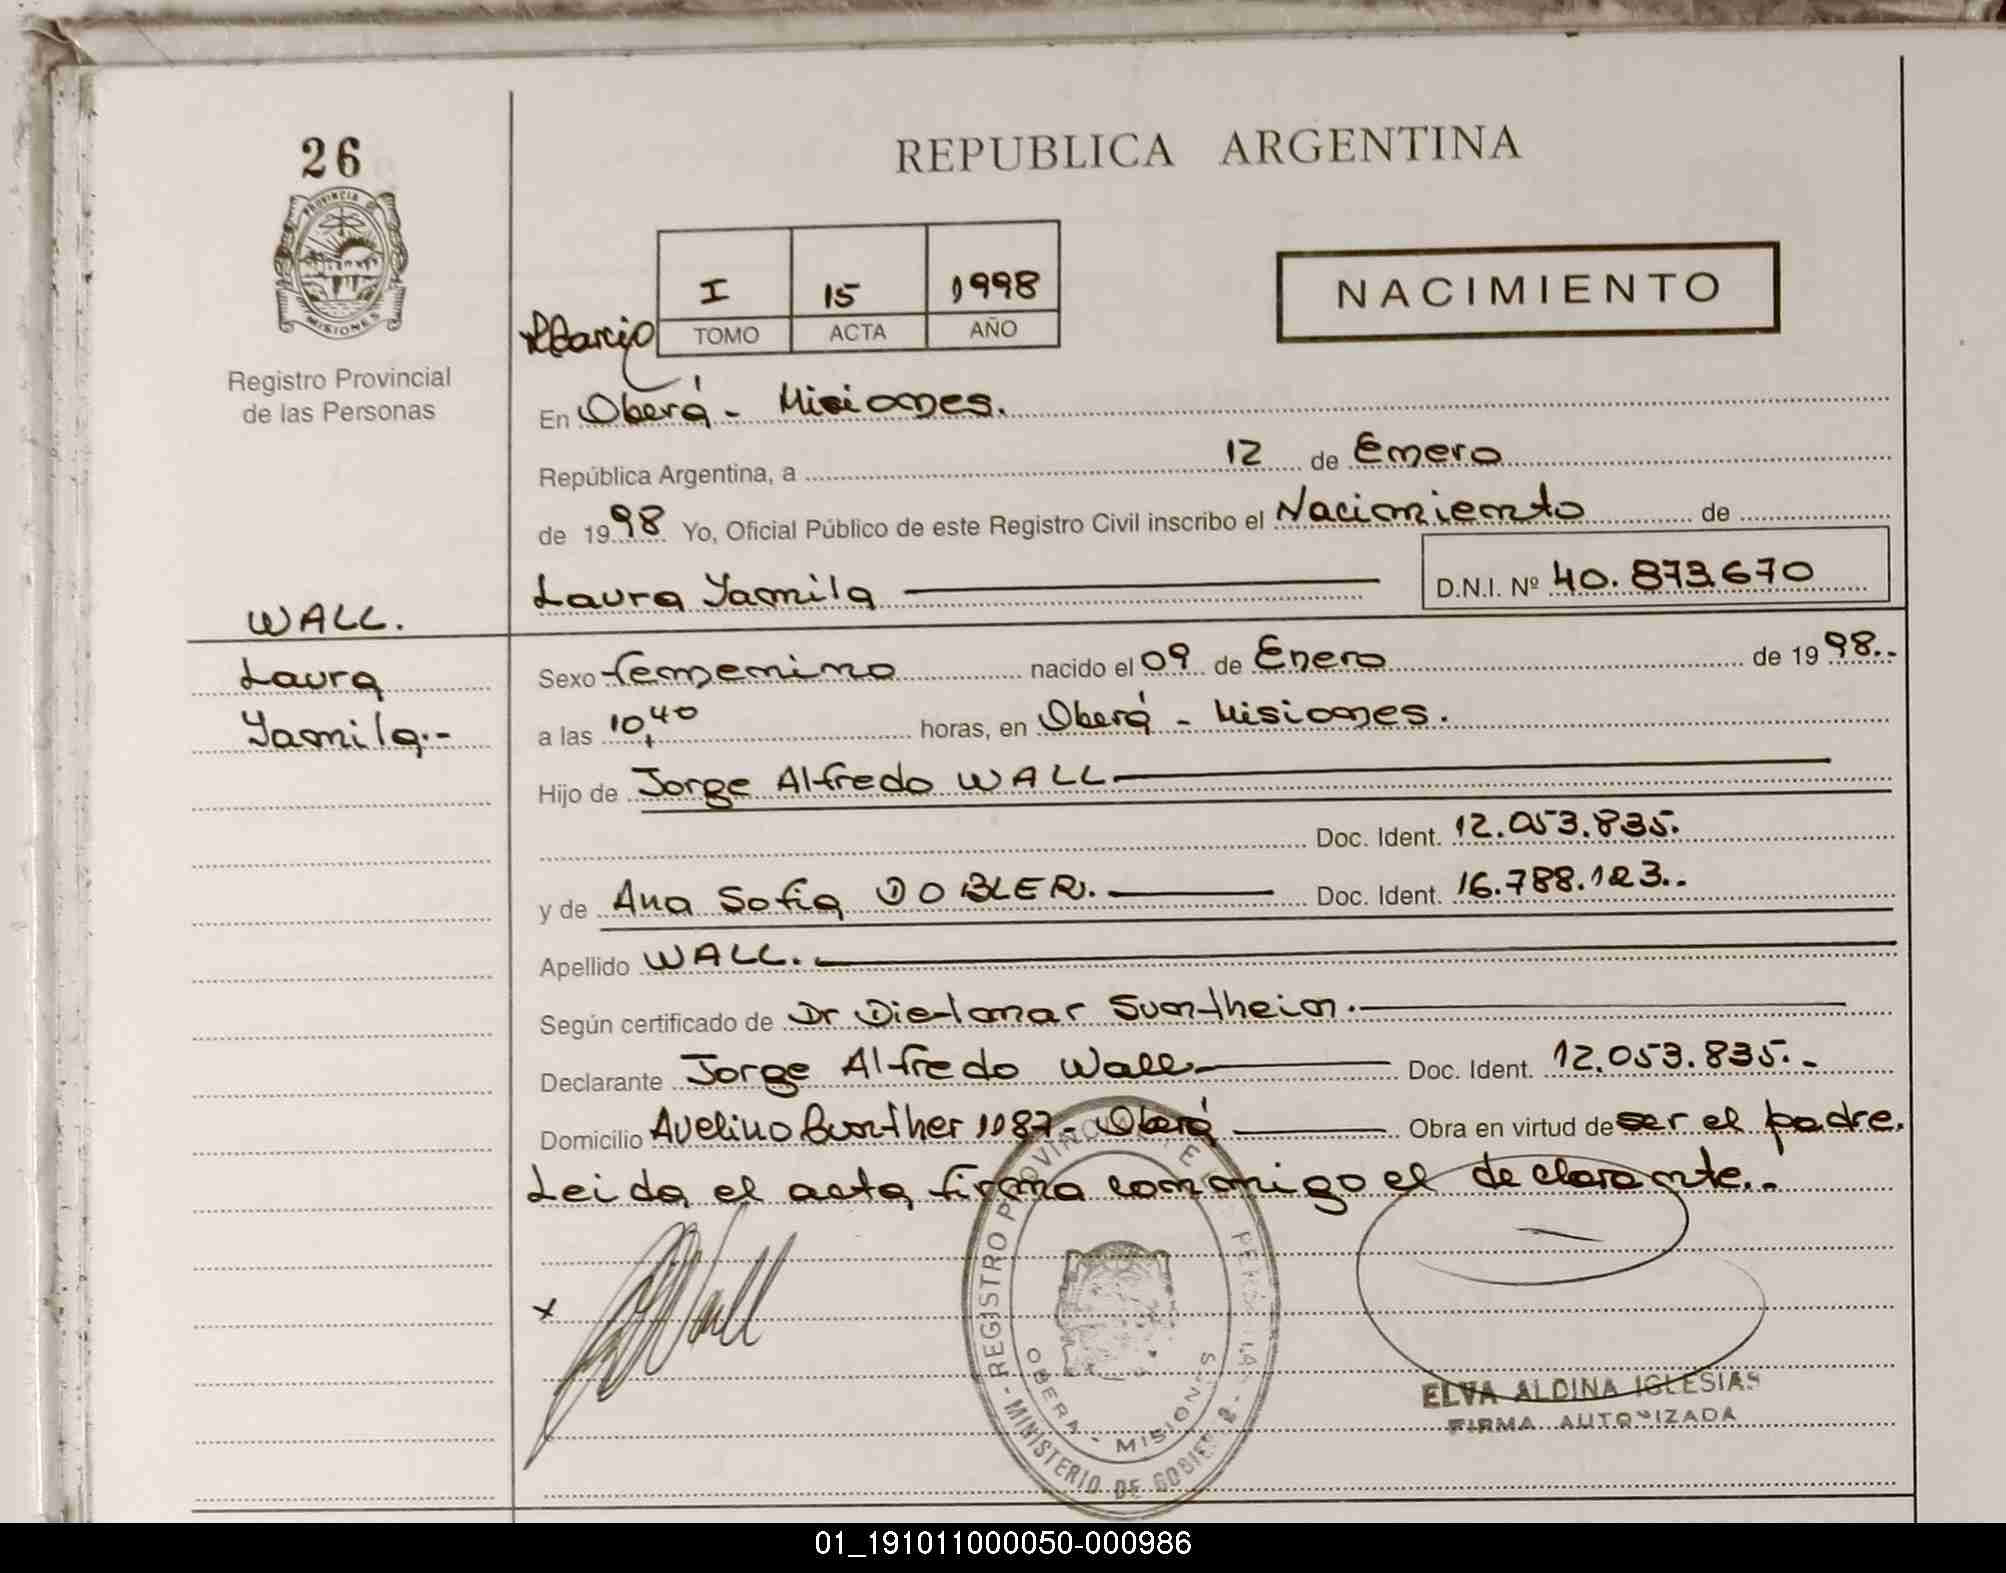 26
PROVINCIA DE
MISIONES
Registro Provincial
de las Personas
REPUBLICA ARGENTINA
I 15 1998
TOMO ACTA AÑO
NACIMIENTO
En Oberá - Misiones.
República Argentina, a 12 de Enero
de 1998 Yo, Oficial Público de este Registro Civil inscribo el Nacimiento de
Laura Yamila D.N.I. Nº 40.873.670
WALL.
Laura
Yamila.-
Sexo femenino nacido el 09 de Enero de 1998.-
a las 10,40 horas, en Oberá - Misiones.
Hijo de Jorge Alfredo WALL
Doc. Ident. 12.053.835.
y de Ana Sofia DOBLER. Doc. Ident. 16.788.123.-
Apellido WALL.
Según certificado de Dr Dietmar Sontheim.
Declarante Jorge Alfredo Wall Doc. Ident. 12.053.835.-
Domicilio Avelino 1087 - Oberá Obra en virtud de ser el padre.
Leida el acta, firma conmigo el declarante.-
x Wall
REGISTRO PROVINCIAL DE LAS PERSONAS
OBERA - MISIONES
- MINISTERIO DE GOBIERNO -
ELVA ALDINA IGLESIAS
FIRMA AUTORIZADA
01_191011000050-000986